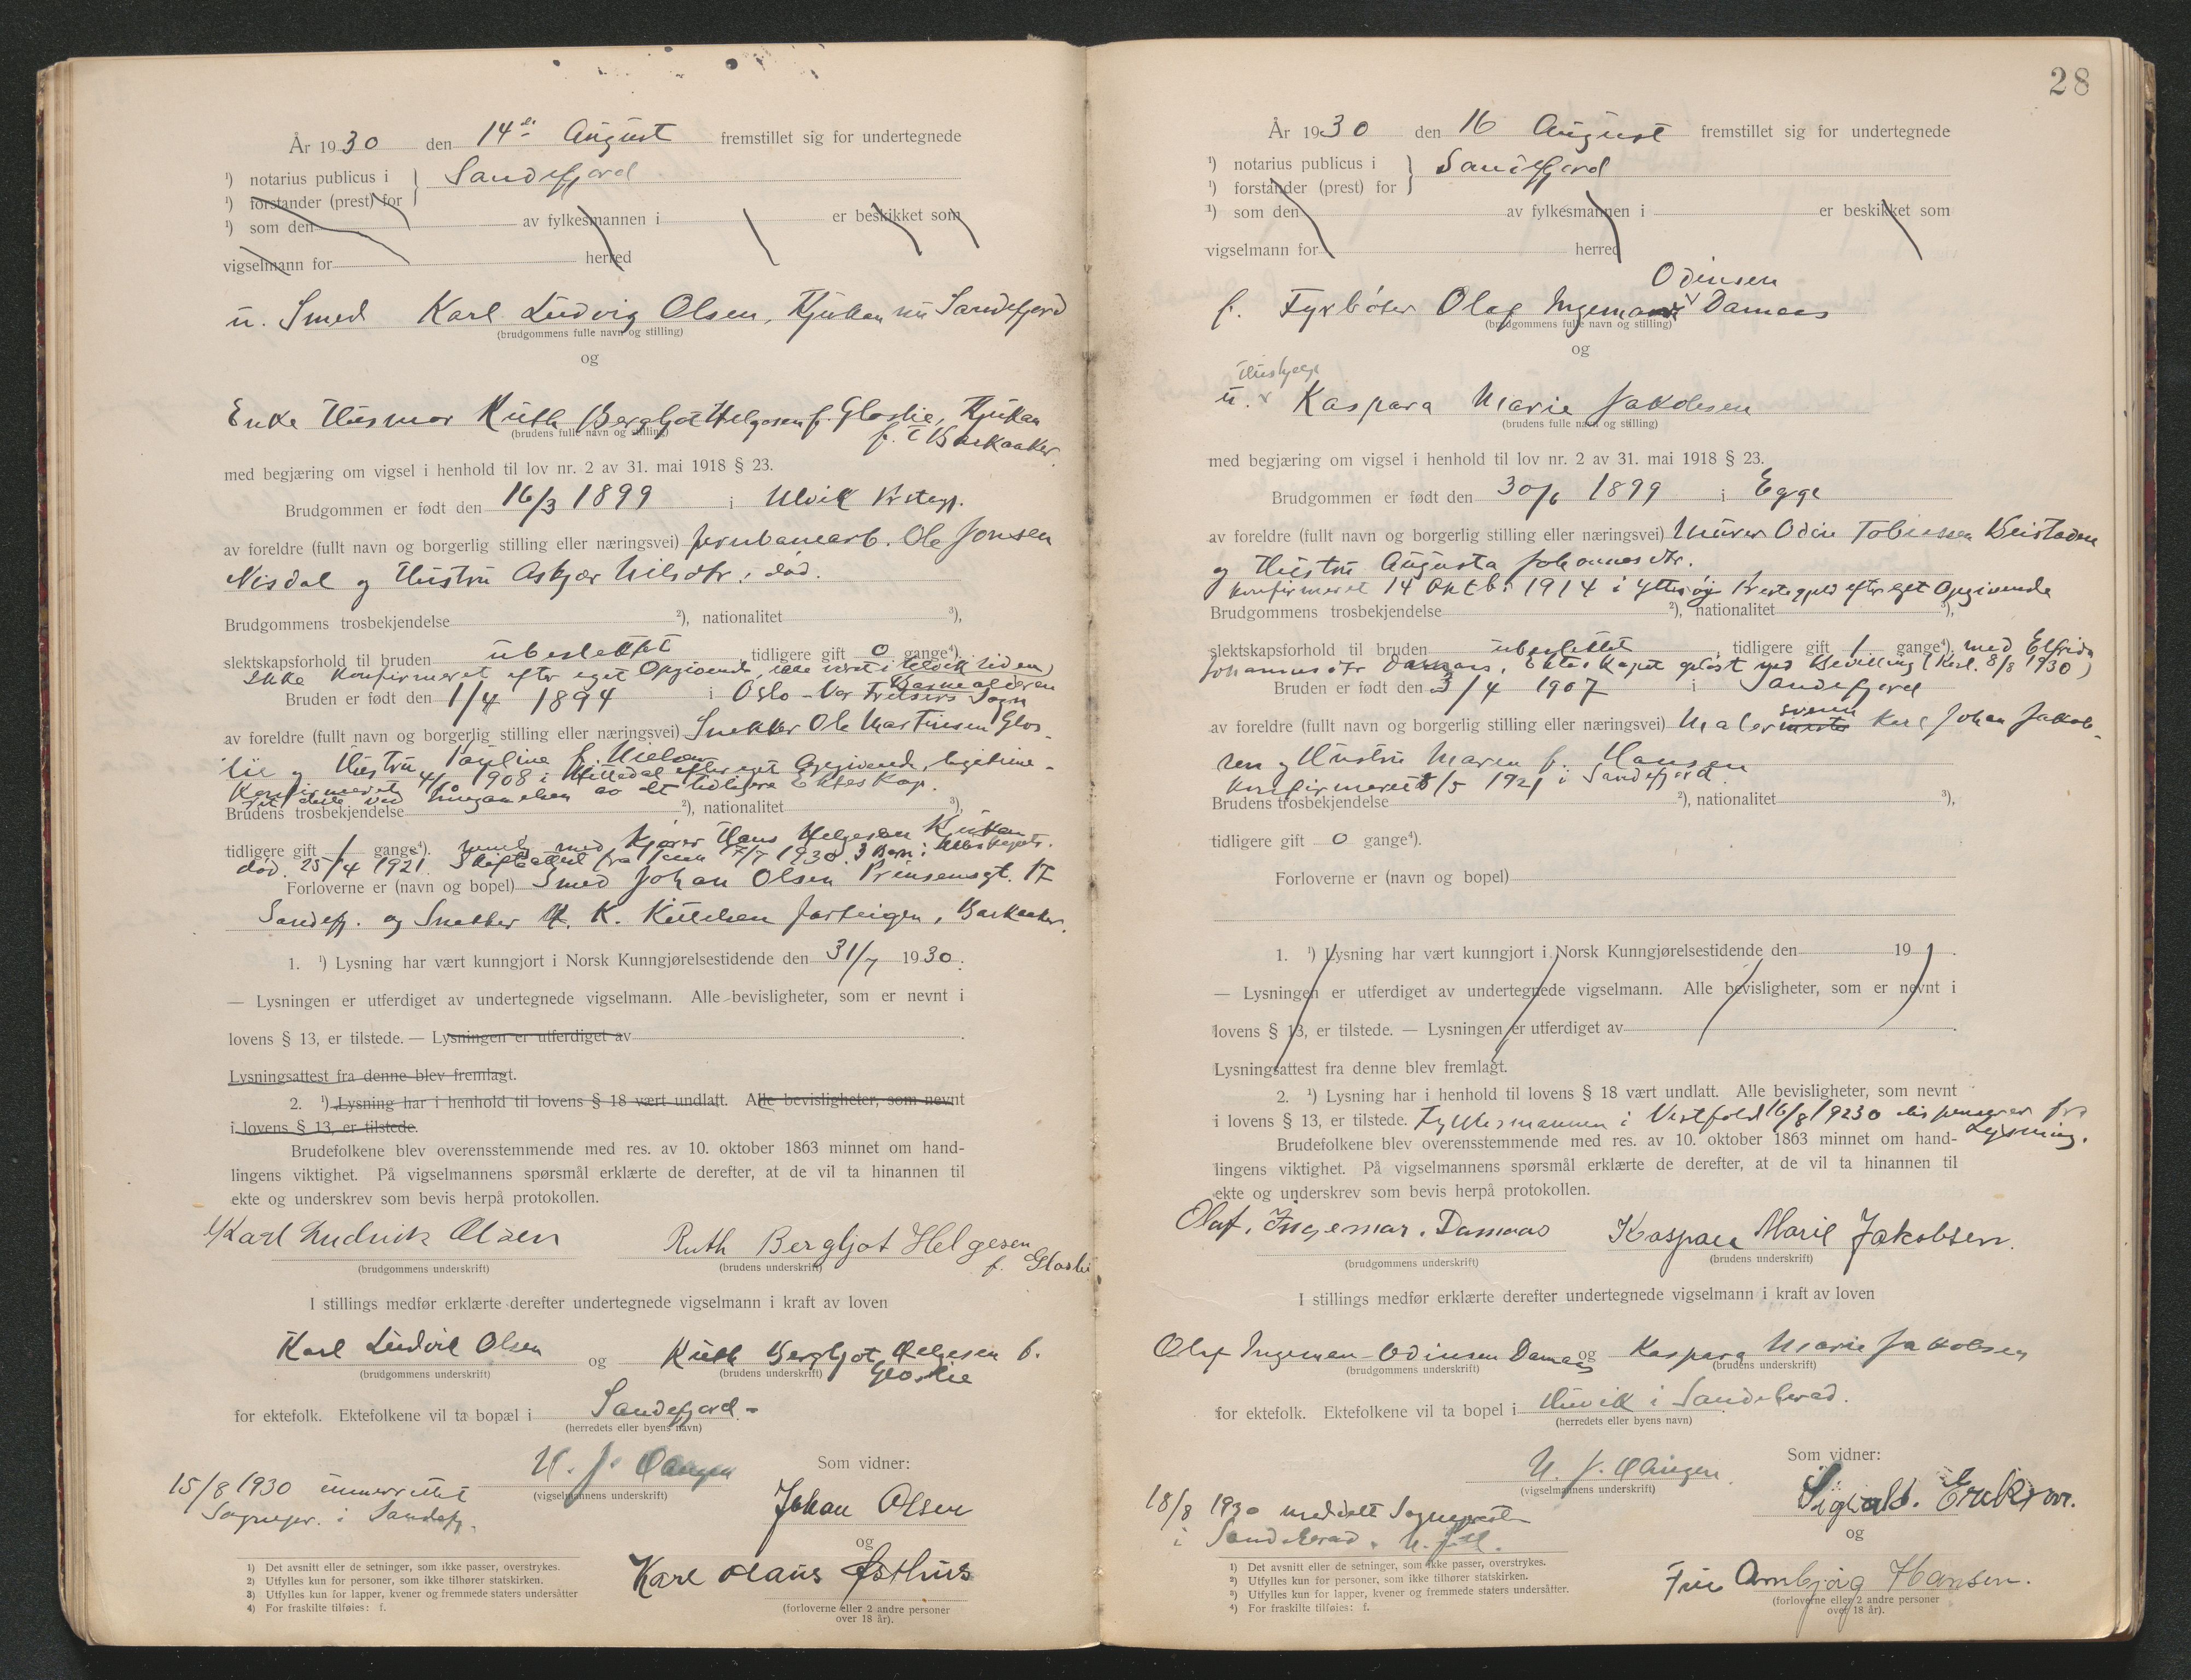 År 1930 den 14de August fremstillet sig for undertegnede
¹) notarius publicus i } Sandefjord
¹) forstander (prest) for
¹) som den av fylkesmannen i er beskikket som
vigselmann for herred
u. Smed Karl Ludvig Olsen, Rjukan nu Sandefjord
(brudgommens fulle navn og stilling)
og
Enke Husmor Ruth Bergljot Helgesen f. Gloslie, Rjukan
(brudens fulle navn og stilling)
f. t. Barkaaker.
med begjæring om vigsel i henhold til lov nr. 2 av 31. mai 1918 § 23.
Brudgommen er født den 16/3 1899 i Ulvik Prstegj.
av foreldre (fullt navn og borgerlig stilling eller næringsvei) Jernbanearb. Ole Jonsen
Nisdal og Hustru Askjær Nilsdtr. død.
Brudgommens trosbekjendelse ²), nationalitet ³),
slektskapsforhold til bruden ubeslektet tidligere gift 0 gange⁴).
Ikke Konfirmeret efter eget Opgivende, ikke været i Ulvik siden
Barnealderen
Bruden er født den 1/4 1894 i Oslo - Vor Frelsers Sogn
av foreldre (fullt navn og borgerlig stilling eller næringsvei) Snekker Ole Martinsen Glos-
lie og Hustru Pauline f. Nielsen
Konfirmeret 4/10 1908 i Mælldal efter eget Opgivende, legitime-
ret dette ved Inngaaelsen av det tidligere Ekteskap.
Brudens trosbekjendelse ²), nationalitet ³),
tidligere gift 1 gange⁴). med Kjører Hans Helgesen Rjukan
død. 25/4 1921. Skifteattest fra 17/7 1930. 3 Barn i Ekteskapet.
Forloverne er (navn og bopel) Smed Johan Olsen Prinsensgt. 17
Sandefj. og Snekker K. Barkaaker.
1. ¹) Lysning har vært kunngjort i Norsk Kunngjørelsestidende den 31/7 1930.
— Lysningen er utferdiget av undertegnede vigselmann. Alle bevisligheter, som er nevnt i
lovens § 13, er tilstede. — Lysningen er utferdiget av
Lysningsattest fra denne blev fremlagt.
2. ¹) Lysning har i henhold til lovens § 18 vært undlatt. Alle bevisligheter, som nevnt
i lovens § 13, er tilstede.
Brudefolkene blev overensstemmende med res. av 10. oktober 1863 minnet om hand-
lingens viktighet. På vigselmannens spørsmål erklærte de derefter, at de vil ta hinannen til
ekte og underskrev som bevis herpå protokollen.
Karl Ludvik Olsen Ruth Bergljot Helgesen
f. Gloslie
(brudgommens underskrift) (brudens underskrift)
I stillings medfør erklærte derefter undertegnede vigselmann i kraft av loven
Karl Ludvik Olsen og Ruth Bergljot Helgesen f.
Gloslie
(brudgommens underskrift) (brudens underskrift)
for ektefolk. Ektefolkene vil ta bopæl i Sandefjord.
(herredets eller byens navn)
Som vidner:
(vigselmannens underskrift)
15/8 1930 underrettet
Sognepr. i Sandefj.
Johan Olsen
og
Karl Olaus Østhus
(forloverne eller 2 andre personer
over 18 år).
1) Det avsnitt eller de setninger, som ikke passer, overstrykes.
2) Utfylles kun for personer, som ikke tilhører statskirken.
3) Utfylles kun for lapper, kvener og fremmede staters undersåtter
4) For fraskilte tilføies: f.
28
År 1930 den 16 August fremstillet sig for undertegnede
¹) notarius publicus i } Sandefjord
¹) forstander (prest) for
¹) som den av fylkesmannen i er beskikket som
vigselmann for herred
Odinsen
f. Fyrbøter Olaf Ingemar Damaas
(brudgommens fulle navn og stilling)
og
Hushjelp
u. Kaspara Marie Jakobsen
(brudens fulle navn og stilling)
med begjæring om vigsel i henhold til lov nr. 2 av 31. mai 1918 § 23.
Brudgommen er født den 30/6 1899 i Egge
av foreldre (fullt navn og borgerlig stilling eller næringsvei) Murer Odin Tobiassen Beistaden
og Hustru Augusta Johannesdtr.
Konfirmeret 14 Oktb. 1914 i Ytterøy Prestegjeld efter eget Opgivende
Brudgommens trosbekjendelse ²), nationalitet ³),
slektskapsforhold til bruden ubeslektet, tidligere gift 1 gange⁴). med Elfrida
Johannesdtr Damaas, Ekteskapet opløst ved Bevilling (Kgl. 8/8 1930)
Bruden er født den 3/4 1907 i Sandefjord
av foreldre (fullt navn og borgerlig stilling eller næringsvei) Malersvenn Karl Johan Jakob-
sen og Hustru Maren f. Hansen
Konfirmeret 8/5 1921 i Sandefjord
Brudens trosbekjendelse ²), nationalitet ³),
tidligere gift 0 gange⁴).
Forloverne er (navn og bopel)
1. ¹) Lysning har vært kunngjort i Norsk Kunngjørelsestidende den 19 .
— Lysningen er utferdiget av undertegnede vigselmann. Alle bevisligheter, som er nevnt i
lovens § 13, er tilstede. — Lysningen er utferdiget av
Lysningsattest fra denne blev fremlagt.
2. ¹) Lysning har i henhold til lovens § 18 vært undlatt. Alle bevisligheter, som nevnt
i lovens § 13, er tilstede. Fylkesmannen i Vestfold 16/8 19230 dispenserer fra
Lysning.
Brudefolkene blev overensstemmende med res. av 10. oktober 1863 minnet om hand-
lingens viktighet. På vigselmannens spørsmål erklærte de derefter, at de vil ta hinannen til
ekte og underskrev som bevis herpå protokollen.
Olaf. Ingemar. Damaas Kaspara Marie Jakobsen.
(brudgommens underskrift) (brudens underskrift)
I stillings medfør erklærte derefter undertegnede vigselmann i kraft av loven
Olaf Ingemar Odinsen Damaas og Kaspara Marie Jakobsen
(brudgommens underskrift) (brudens underskrift)
for ektefolk. Ektefolkene vil ta bopel i Huvik i Sandeherad.
(herredets eller byens navn)
Som vidner:
(vigselmannens underskrift)
18/8 1930 meddelt Sognepresten
i Sandeherad.
Sigvald.
og
Fru Arnbjørg Hansen.
(forloverne eller 2 andre personer
over 18 år).
1) Det avsnitt eller de setninger, som ikke passer, overstrykes.
2) Utfylles kun for personer, som ikke tilhører statskirken.
3) Utfylles kun for lapper, kvener og fremmede staters undersåtter.
4) For fraskilte tilføies: f.